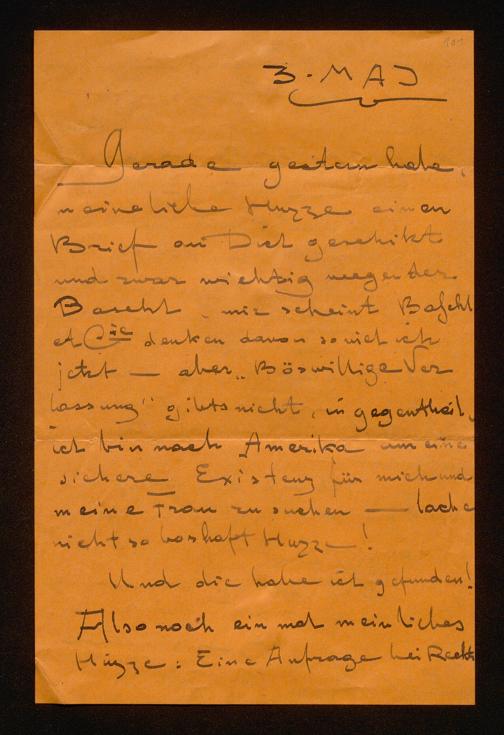 101
3. MAJ
Gerade gestern habe,
meine liebe Muzze einen
Brief an Dich geschikt
und zwar wichtig wegen der
Baschl, mir scheint Baschl
et Cie denken davon so viel ich
jetzt — aber „Böswillige Ver
lassung" gibts nicht, in gegentheil,
ich bin nach Amerika um eine
sichere Existenz für mich und
meine Frau zu suchen — lache
nicht so boshaft Muzze!
Und die habe ich gefunden!
Also noch ein mal mein liebes
Muzze: Eine Anfrage bei Rechts